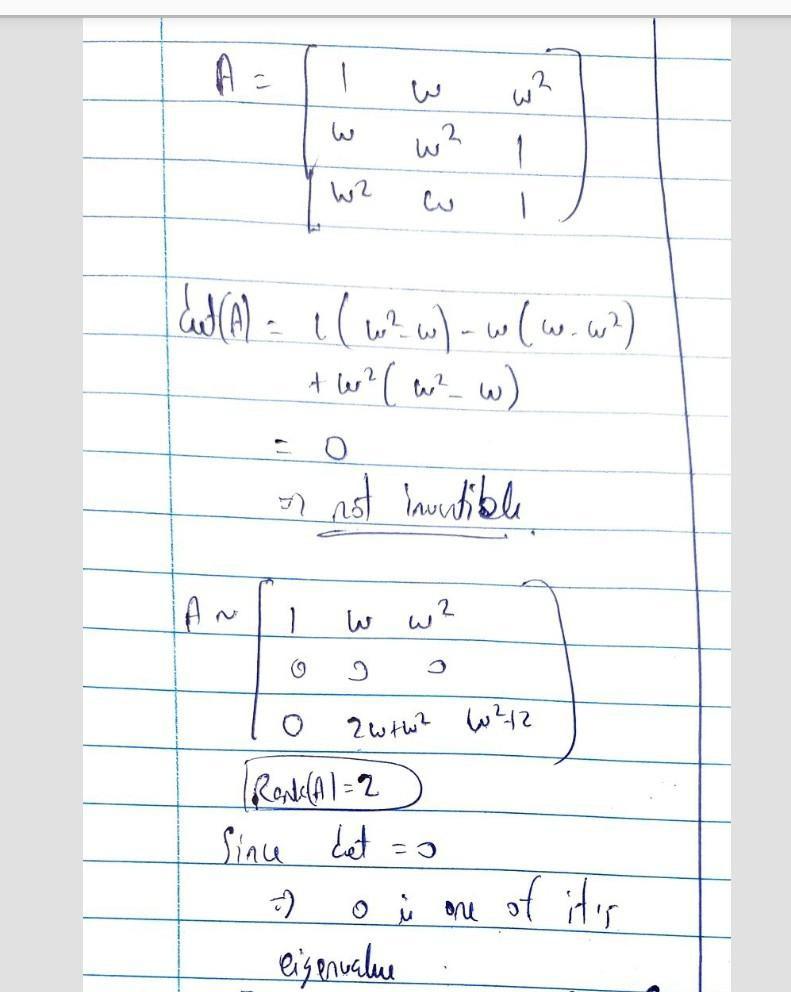 A = [ 1 ω ω²
ω ω² 1
ω² ω 1 ]
det(A) = 1(ω²-ω) - ω(ω-ω²)
+ ω²(ω²-ω)
= 0
⇒ not invertible.
A ~ [ 1 ω ω²
0 0 0
0 2ω+ω² ω²+2 ]
Rank(A)=2
Since det = 0
⇒ 0 is one of it's
eigenvalue